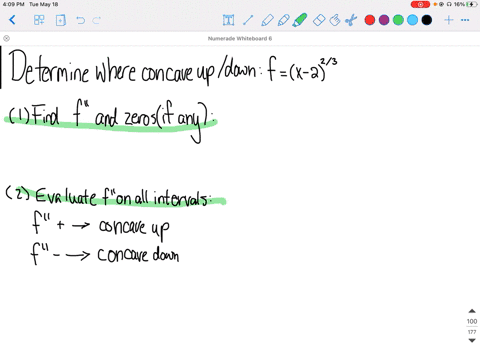 4:09 PM Tue May 18
16%
Numerade Whiteboard 6
Determine where concave up/down: f=(x-2)^2/3
(1) Find f" and zeros (if any):
(2) Evaluate f" on all intervals:
f" + → concave up
f" - → concave down
100
177